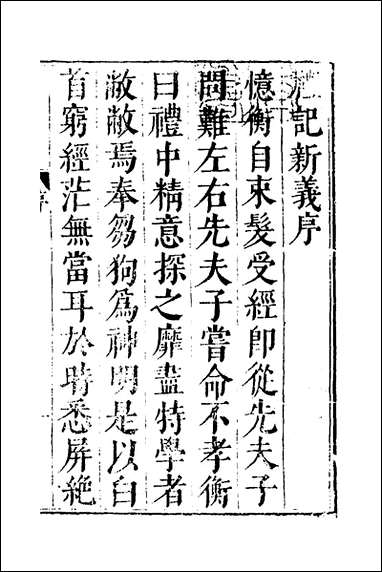 禮記新義序
憶衡自束髮受經卽從先夫子
問難左右先夫子嘗命不孝衡
曰禮中精意探之靡盡特學者
敝敝焉奉芻狗爲神明是以白
首窮經茫無當耳於時悉屏絶
序